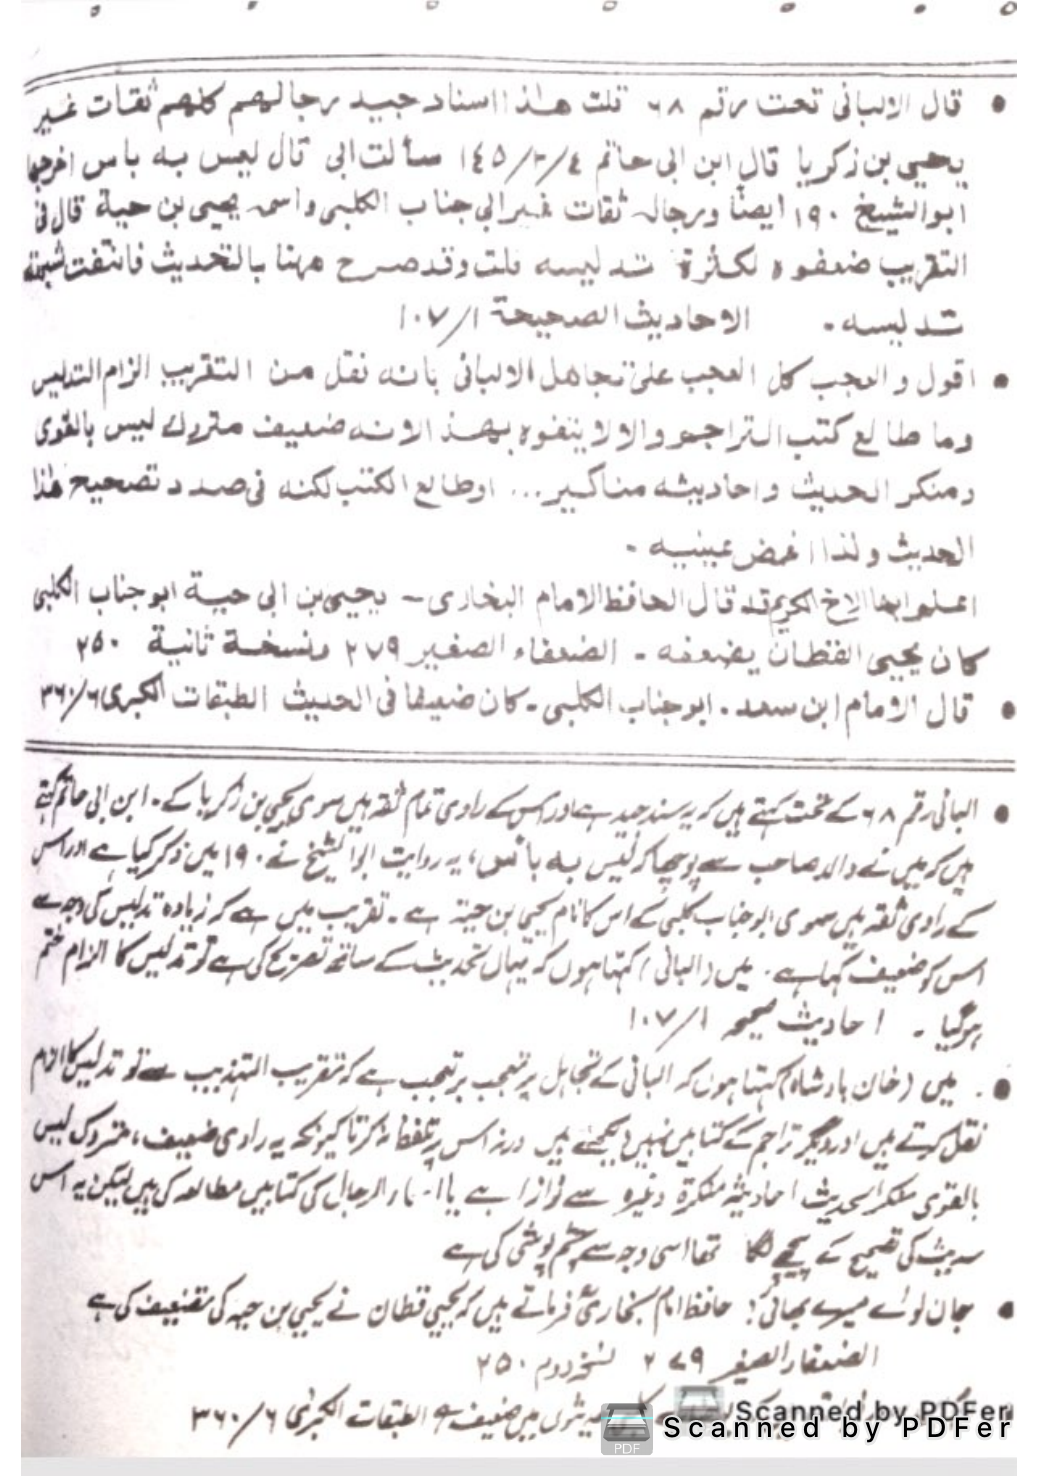 قال الالبانی تحت رقم ٦٨ قلت هذا اسناد جيد رجالهم كلهم ثقات غير
يحيى بن زكريا قال ابن ابى حاتم ١٤٥/٢/٤ سألت ابى قال ليس به باس اخرجها
ابو الشيخ ١٩٠ ايضًا ورجاله ثقات غير ابى جناب الكلبى واسمه يحيى بن حية قال فى
التقريب ضعفوه لكثرة تدليسه قلت وقد صرح ههنا بالتحديث فانتفت شبهة
تدليسه۔ الاحاديث الصحيحة ١٠٧/١
اقول والعجب كل العجب على تجاهل الالبانى بانه نقل من التقريب الزام التدليس
وما طالع كتب التراجم والا لا يتفوه بهذا لانه ضعيف متروك ليس بالقوى
ومنكر الحديث واحاديثه مناكير... او طالع الكتب لكنه فى صدد تصحيح هذا
الحديث ولذا اغمض عينيه۔
اعلم ايها الاخ الكريم قد قال الحافظ الامام البخارى – يحيى بن ابى حية ابو جناب الكلبى
كان يحيى القطان يضعفه۔ الضعفاء الصغير ٢٧٩ ونسخة ثانية ٢٥٠
قال الامام ابن سعد۔ ابو جناب الكلبى۔ كان ضعيفا فى الحديث الطبقات الكبرى ٣٦٠/٦
البانی رقم ٦٨ کے تحت کہتے ہیں کہ یہ سند جید ہے اور اس کے راوی تمام ثقہ ہیں سوی یحیی بن زکریا کے۔ ابن ابی حاتم کہتے
ہیں کہ میں نے والد صاحب سے پوچھا کہ لیس به باس، یہ روایت ابو الشیخ نے ١٩٠ میں ذکر کیا ہے اور اس
کے راوی ثقہ ہیں سوی ابو جناب کلبی کے اس کا نام یحیی بن حیة ہے۔ تقریب میں ہے کہ زیادہ تدلیس کی وجہ سے
اس کو ضعیف کہا ہے۔ میں (البانی) کہتا ہوں کہ یہاں تحدیث کے ساتھ تصریح کی ہے تو تدلیس کا الزام ختم
ہوگیا۔ احادیث صحیحہ ١٠٧/١
میں (خان بادشاہ) کہتا ہوں کہ البانی کے تجاہل پر تعجب بر تعجب ہے کہ تقریب التہذیب سے تو تدلیس کا الزام
نقل کرتے ہیں اور دیگر تراجم کے کتابیں نہیں دیکھتے ہیں ورنہ اس پر تلفظ نہ کرتا کیونکہ یہ راوی ضعیف، متروک لیس
بالقوی منکر الحدیث احادیثہ منکرة وغیرہ سے نوازا ہے یا الرجال کی کتابیں مطالعہ کی ہیں لیکن یہ اس
حدیث کی تصحیح کے پیچھے لگا تھا اسی وجہ سے چشم پوشی کی ہے
جان لو اے میرے بھائی! حافظ امام بخاریؒ فرماتے ہیں کہ یحیی قطان نے یحیی بن حیہ کی تضعیف کی ہے
الضعفاء الصغیر ٢٧٩ نسخہ دوم ٢٥٠
حدیثوں میں ضعیف ہے الطبقات الکبری ٣٦٠/٦
Scanned by PDFer
Scanned by PDFer
PDF